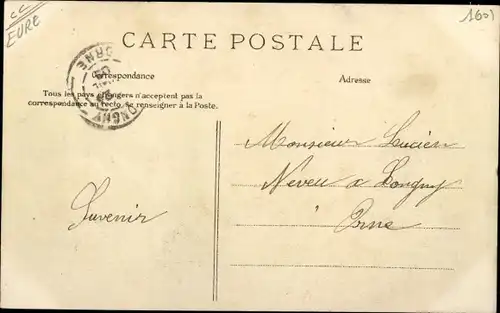 CC
EURE
1601
CARTE POSTALE
Correspondance
Adresse
Tous les pays étrangers n'acceptent pas la
correspondance au recto, se renseigner à la Poste.
ORNE
LONGNY
Monsieur Lucien
Neveu à Longny
Orne
Suvenir